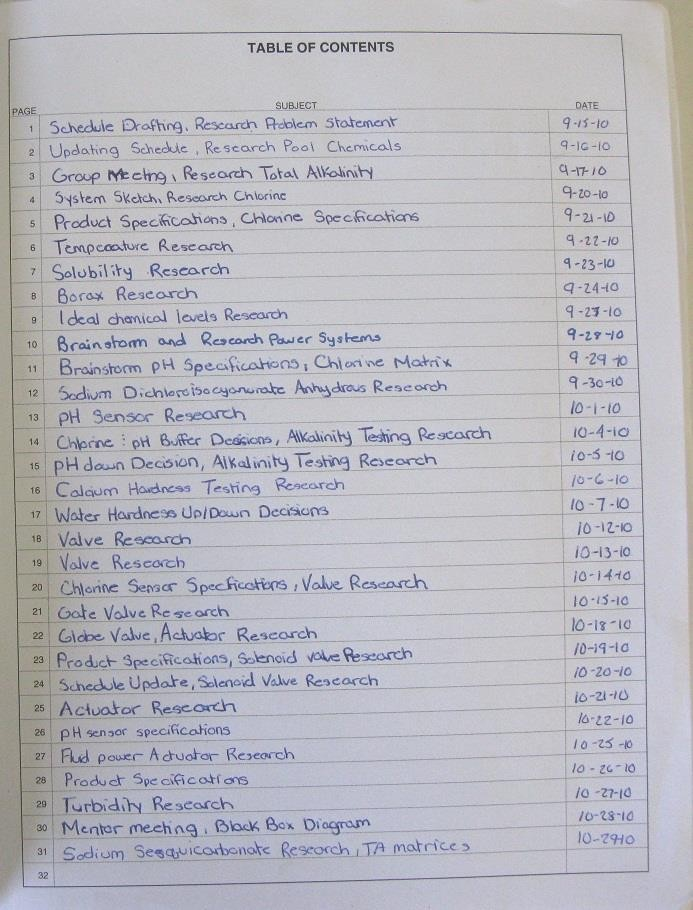 TABLE OF CONTENTS
PAGE SUBJECT DATE
1 Schedule Drafting, Research Problem Statement 9-15-10
2 Updating Schedule, Research Pool Chemicals 9-16-10
3 Group Meeting, Research Total Alkalinity 9-17-10
4 System Sketch, Research Chlorine 9-20-10
5 Product Specifications, Chlorine Specifications 9-21-10
6 Temperature Research 9-22-10
7 Solubility Research 9-23-10
8 Borax Research 9-24-10
9 Ideal chemical levels Research 9-27-10
10 Brainstorm and Research Power Systems 9-28-10
11 Brainstorm pH Specifications, Chlorine Matrix 9-29-10
12 Sodium Dichloroisocyanurate Anhydrous Research 9-30-10
13 pH Sensor Research 10-1-10
14 Chlorine : pH Buffer Decisions, Alkalinity Testing Research 10-4-10
15 pH down Decision, Alkalinity Testing Research 10-5-10
16 Calcium Hardness Testing Research 10-6-10
17 Water Hardness Up/Down Decisions 10-7-10
18 Valve Research 10-12-10
19 Valve Research 10-13-10
20 Chlorine Sensor Specfications, Valve Research 10-14-10
21 Gate Valve Research 10-15-10
22 Globe Valve, Actuator Research 10-18-10
23 Product Specifications, Solenoid valve Research 10-19-10
24 Schedule Update, Solenoid Valve Research 10-20-10
25 Actuator Research 10-21-10
26 pH sensor specifications 10-22-10
27 Fluid power Actuator Research 10-25-10
28 Product Specifications 10-26-10
29 Turbidity Research 10-27-10
30 Mentor meeting, Black Box Diagram 10-28-10
31 Sodium Sesquicarbonate Research, TA matrices 10-29-10
32